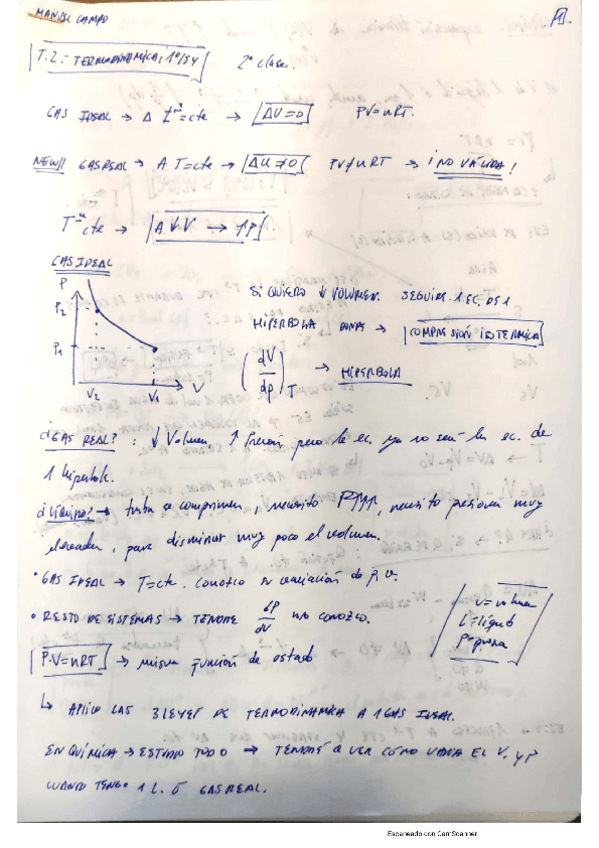 MANUEL CAMPO
1
T.2.: TERMODINÁMICA: 1º/S4 2ª clase.
GAS IDEAL → A Tª=cte → ΔU=0 PV=nRT.
NEW!! GAS REAL → A T=cte → ΔU≠0 PV≠nRT → ¡NO VÁLIDA!
Tª cte → A ↓V → ↑P
GAS IDEAL
P
P2
P1
V2 V1 V
SI QUIERO ↓ VOLUMEN. SEGUIRÉ 1 EC. DE 1
HIPERBOLA → COMPRESIÓN ISOTERMICA
(dV/dp)T → HIPERBOLA
¿GAS REAL? : ↓ Volumen ↑ Presión pero la ec. ya no será la ec. de
1 hiperbola.
¿LÍQUIDO? → trata a comprimir, necesito P↑↑↑, necesito presiones muy
elevadas, para disminuir muy poco el volumen.
• GAS IDEAL → T=cte. CONOZCO SU VARIACIÓN DE p, v.
• RESTO DE SISTEMAS → TENDRÉ dP/dV NO CONOZCO.
V=volumen
L=líquido
P=presión
P·V=nRT → misma función de estado
↳ APLICO LAS 3 LEYES DE TERMODINÁMICA A 1 GAS IDEAL.
EN QUÍMICA → ESTUDIO TODO → TENDRÉ Q VER CÓMO VARÍA EL V. y P
CUANDO TENGO 1 L. Ó GAS REAL.
Escaneado con CamScanner